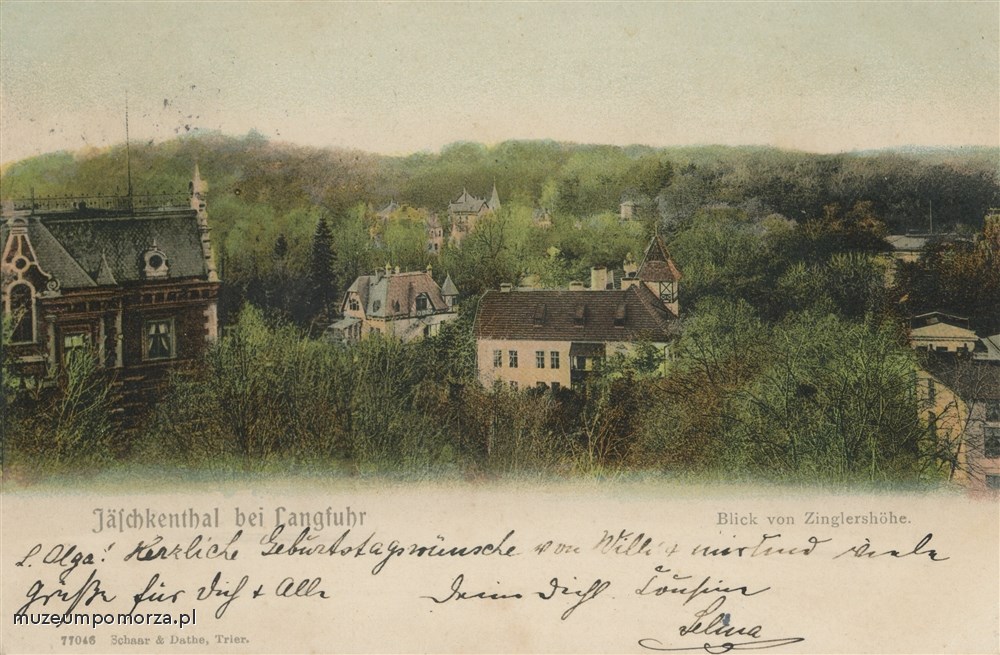 Jäschkenthal bei Langfuhr
Blick von Zinglershöhe.
L. Olga! Herzliche Geburtstagswünsche von Willi + mir und viele
Grüße für Dich + Alle Deine Dich Cousine
Selma
muzeumpomorza.pl
77046 Schaar & Dathe, Trier.